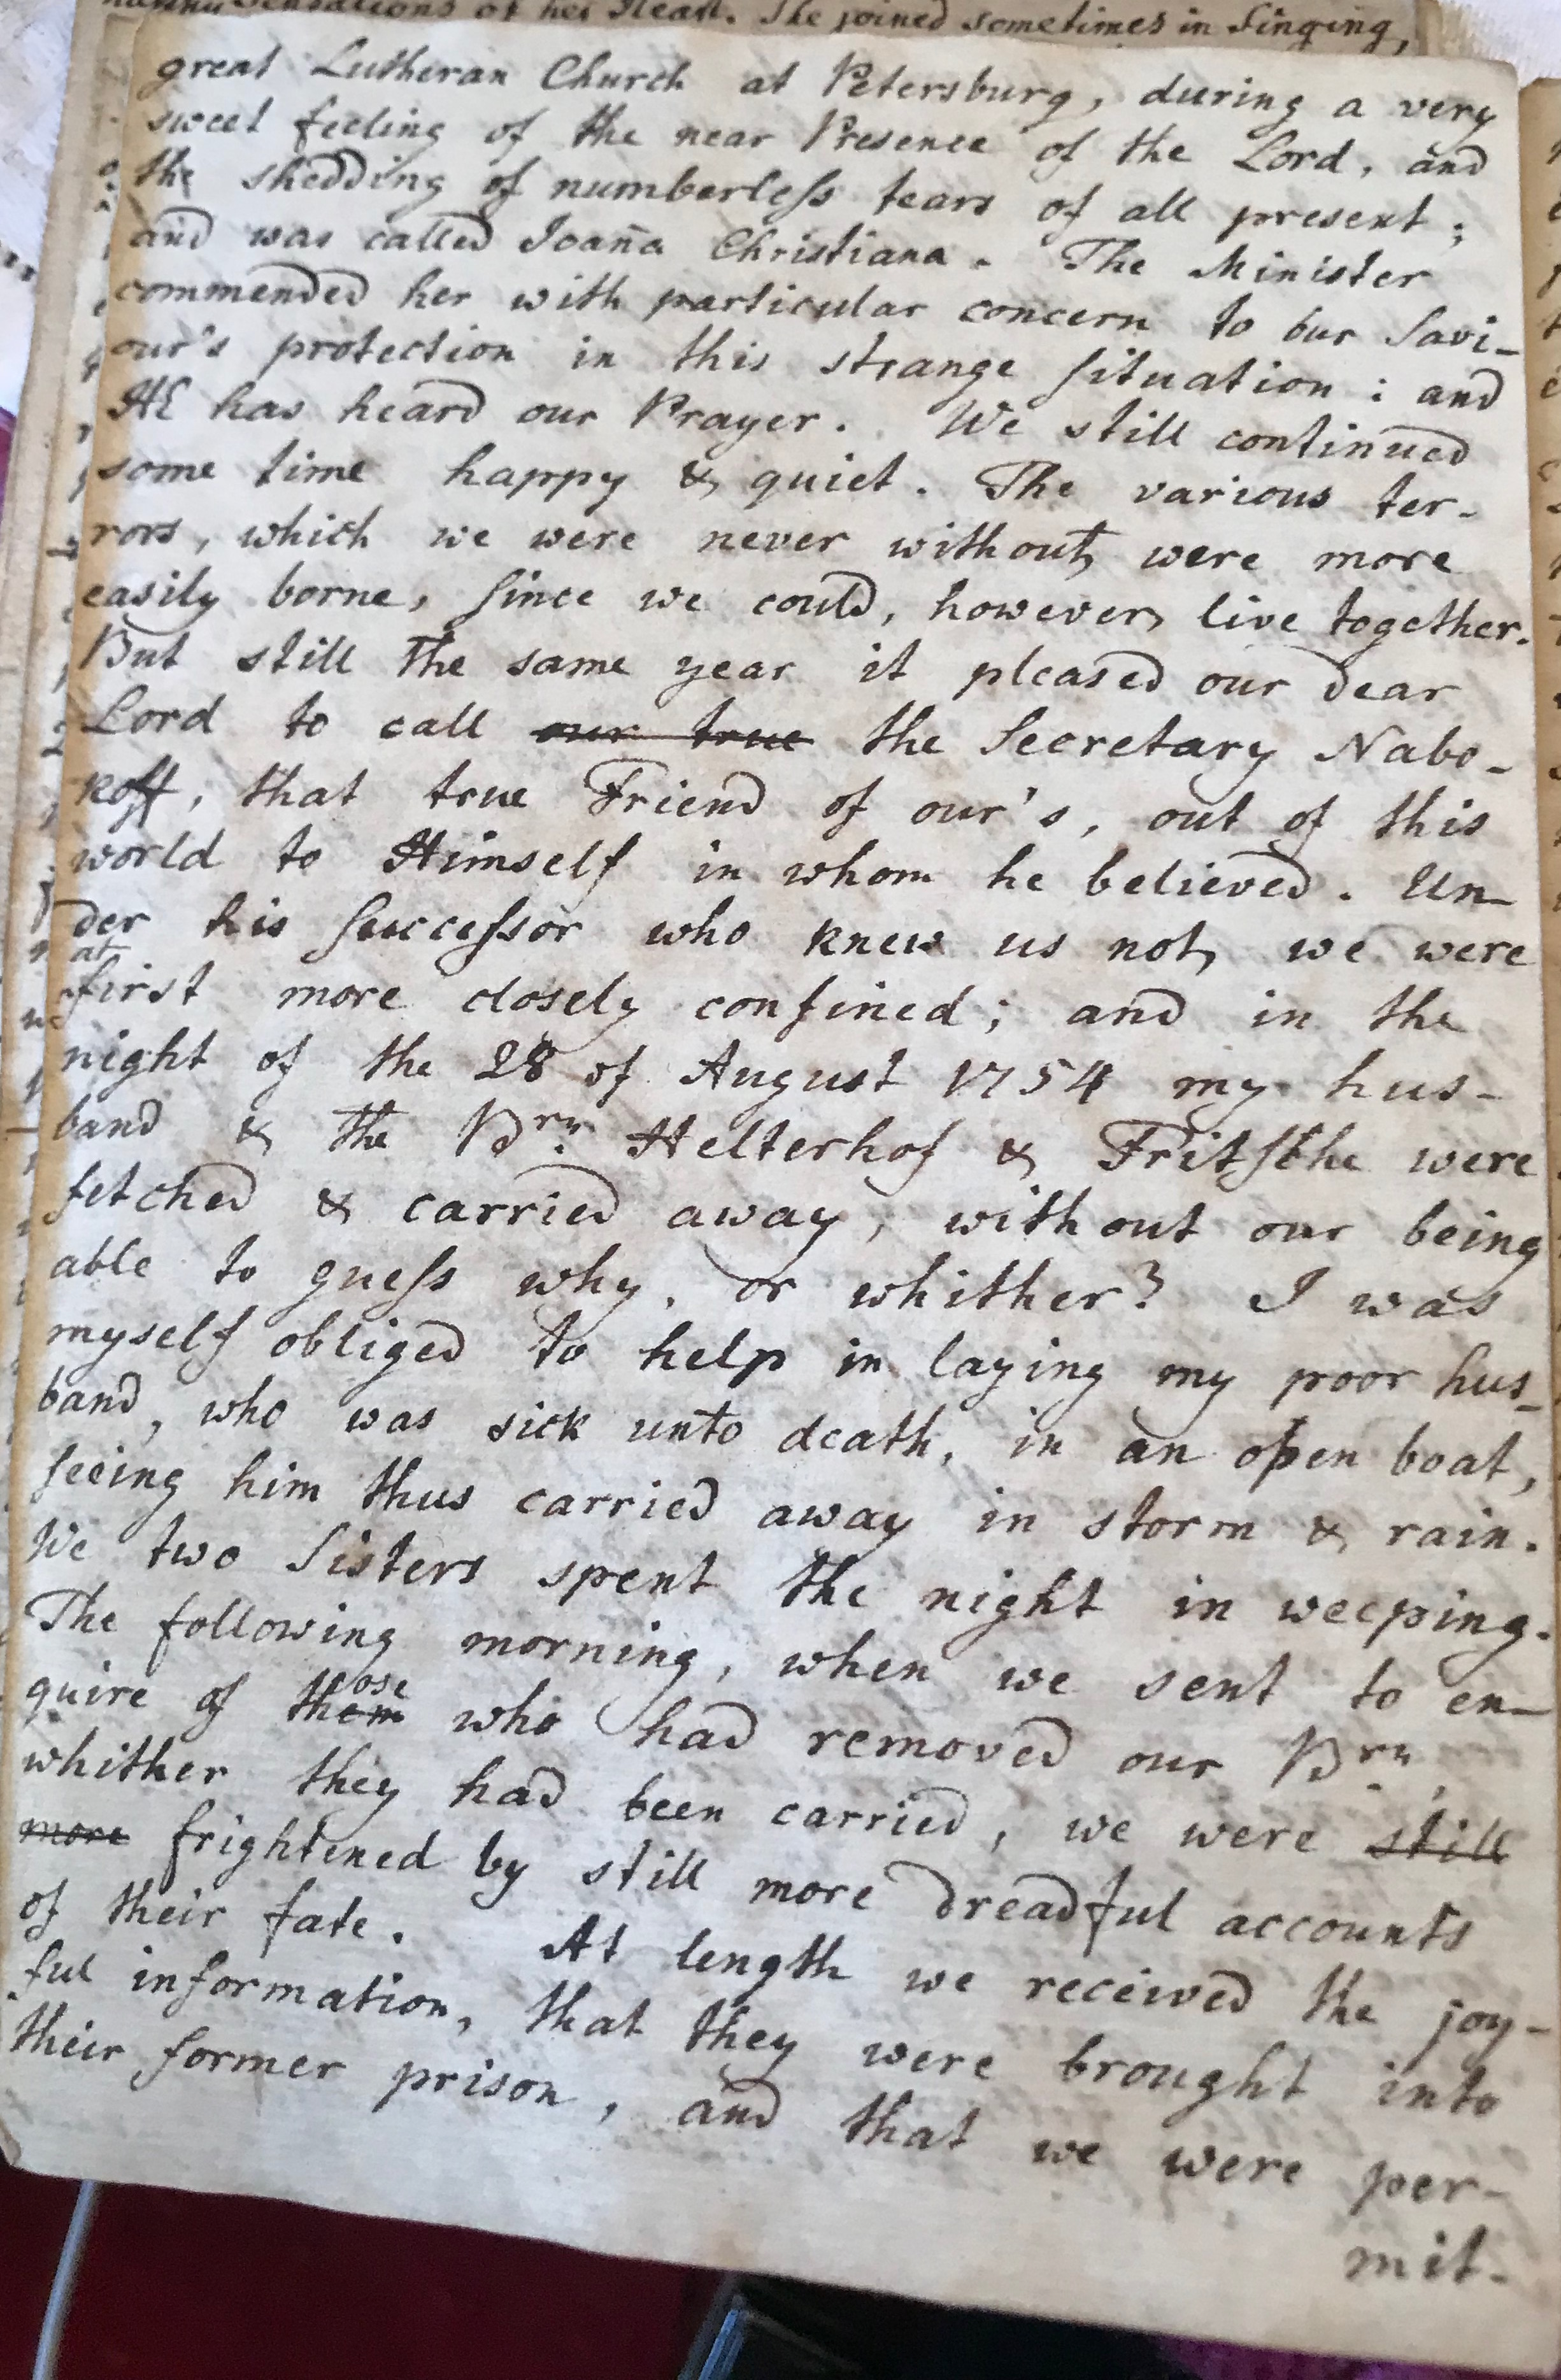 happy Sensations of her Heart. She joined sometimes in Singing,
great Lutheran Church at Petersburg, during a very
sweet feeling of the near Presence of the Lord, and
the shedding of numberleſs tears of all present;
and was called Joan̄a Christiana. The Minister
commended her with particular concern to our Savi-
our's protection in this strange ſituation: and
HE has heard our Prayer. We still continued
some time happy & quiet. The various ter-
rors, which we were never without, were more
easily borne, ſince we could, however, live together.
But still the same year it pleased our dear
Lord to call our true the Secretary Nabo-
koff, that true Friend of our's, out of this
world to Himself in whom he believed. Un-
der his Succeſsor who knew us not, we were
at
first more closely confined; and in the
night of the 28 of August 1754 my hus-
band & the Brn. Helterhof & Fritſche were
fetched & carried away, without our being
able to gueſs why, or whither? I was
myself obliged to help in laying my poor hus-
band, who was sick unto death, in an open boat,
ſeeing him thus carried away in storm & rain.
We two Sisters spent the night in weeping.
The following morning, when we sent to en-
quire of them ose who had removed our Brn.,
whither they had been carried, we were still
more frightened by still more dreadful accounts
of their fate. At length we received the joy-
ful information, that they were brought into
their former prison, and that we were per-
mit-